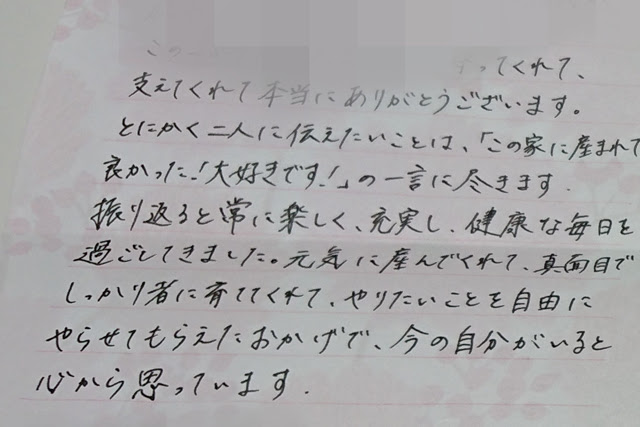 この
ってくれて、
支えてくれて本当にありがとうございます。
とにかく二人に伝えたいことは、「この家に産まれて
良かった!「大好きです!」の一言に尽きます.
振り返ると常に楽しく、充実し、健康な毎日を
過ごしてきました。元気に産んでくれて、真面目で
しっかり者に育ててくれて、やりたいことを自由に
やらせてもらえたおかげで、今の自分がいると
心から思っています.